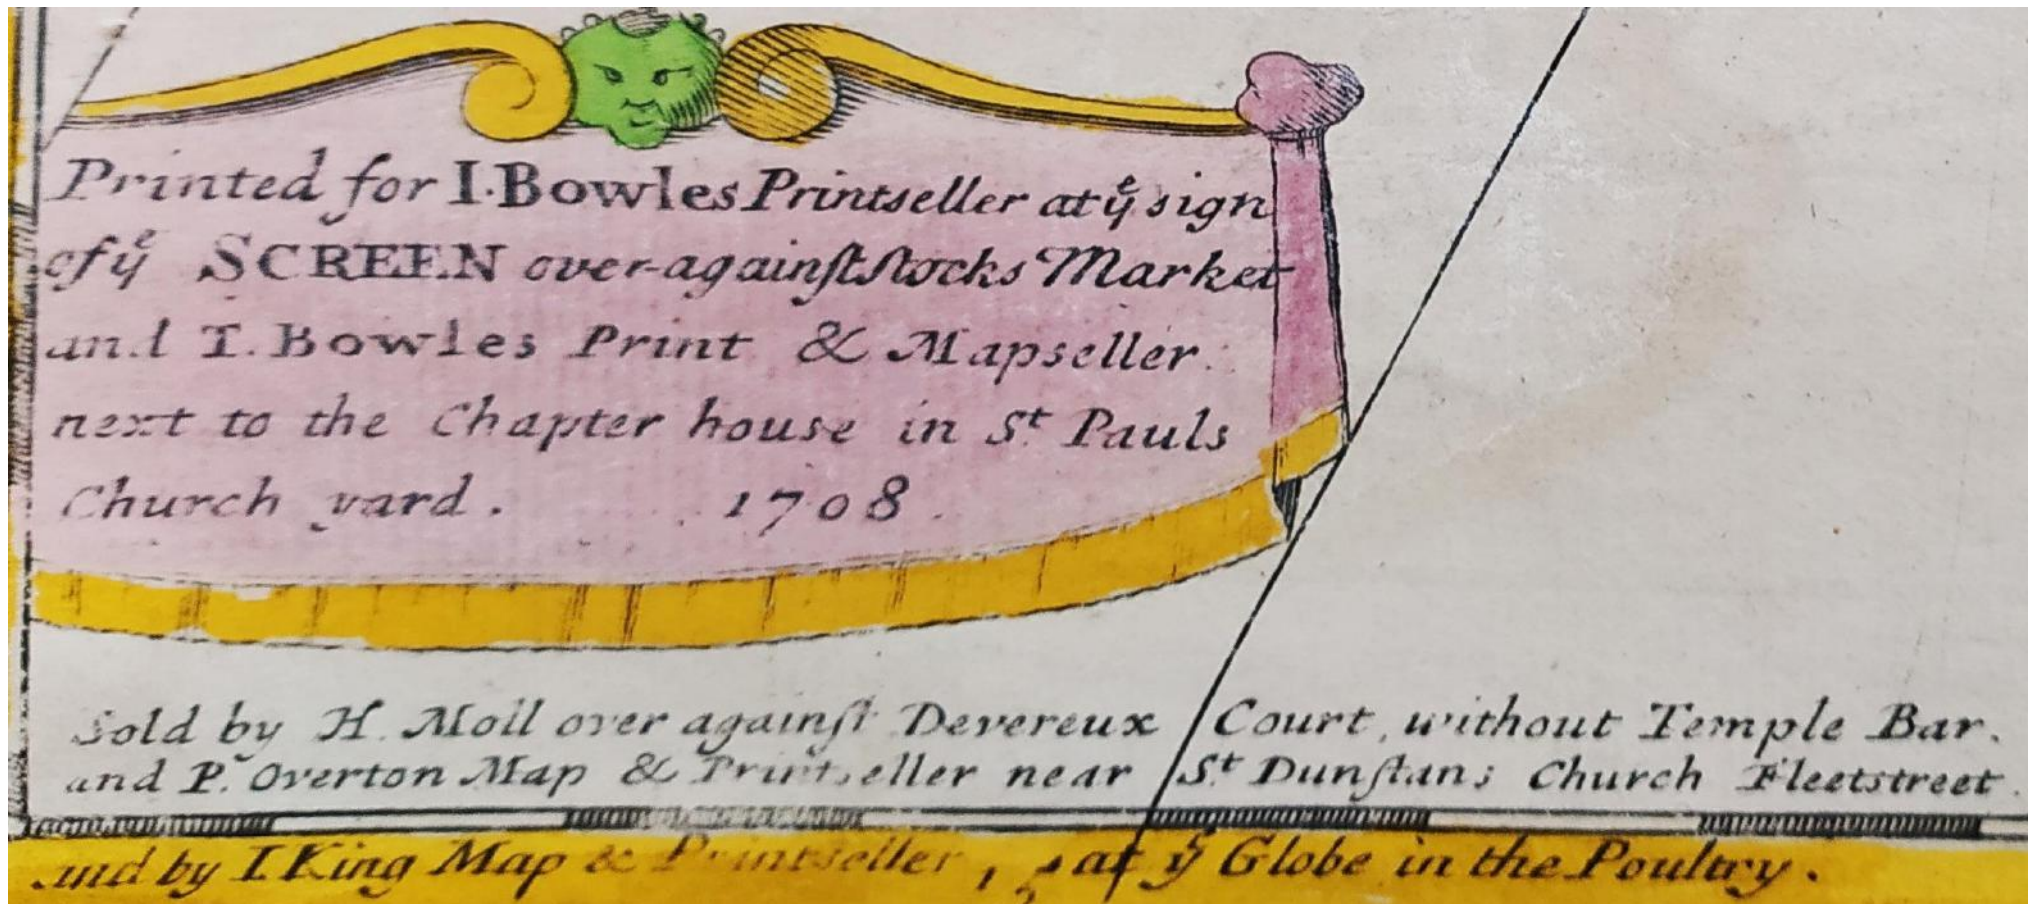 Printed for I. Bowles Printseller at yᵉ sign
of yᵉ SCREEN over-againſt ſtocks Market
and T. Bowles Print & Mapseller
next to the Chapter house in Sᵗ Pauls
Church yard. 1708.
Sold by H. Moll over againſt Devereux Court, without Temple Bar.
and P. Overton Map & Printseller near Sᵗ Dunſtans Church Fleetstreet.
and by I King Map & Printseller, at yᵉ Globe in the Poultry.